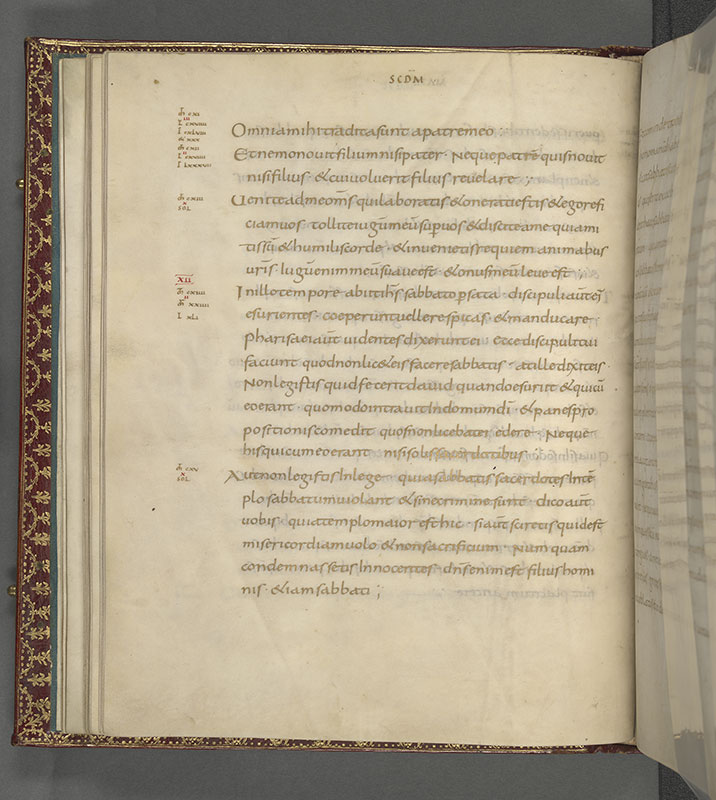 SCDM
Omnia mihi tradita sunt a patre meo;
Et nemo novit filium nisi pater · Neque patrē quis novit
nisi filius · & cui voluerit filius revelare;
Venite ad me om̄s qui laboratis & onerati estis & ego refi
ciam vos · tollite iugū meū sup vos & discite a me quia mi
tis sū & humilis corde · & invenietis requiem animabus
vr̄is iugū enim meū suave est · & onus meū leve est;
XII
In illo tempore abiit ih̄s sabbato p sata · discipuli aut̄ ei'
esurientes · coeperunt vellere spicas & manducare
pharisaei aūt videntes dixerunt ei · ecce discipuli tui
faciunt quod non lic& eis facere sabbatis · at ille dixit eis
Non legistis quid fecerit david quando esuriit & qui cū
eo erant · quomodo intravit In domum dī · & panes pro
positionis comedit quos non licebat ei edere · Neque
his qui cum eo erant · nisi solis sacerdotibus
Aut non legistis In lege · quia sabbatis sacerdotes In tē
plo sabbatum violant & sine crimine sunt · dico aūt
vobis · quia templo maior est hic · si aūt sciretis quid est
misericordiam volo & non sacrificium · Numquam
condemnassetis Innocentes · dn̄s enim est filius homi
nis · &iam sabbati;